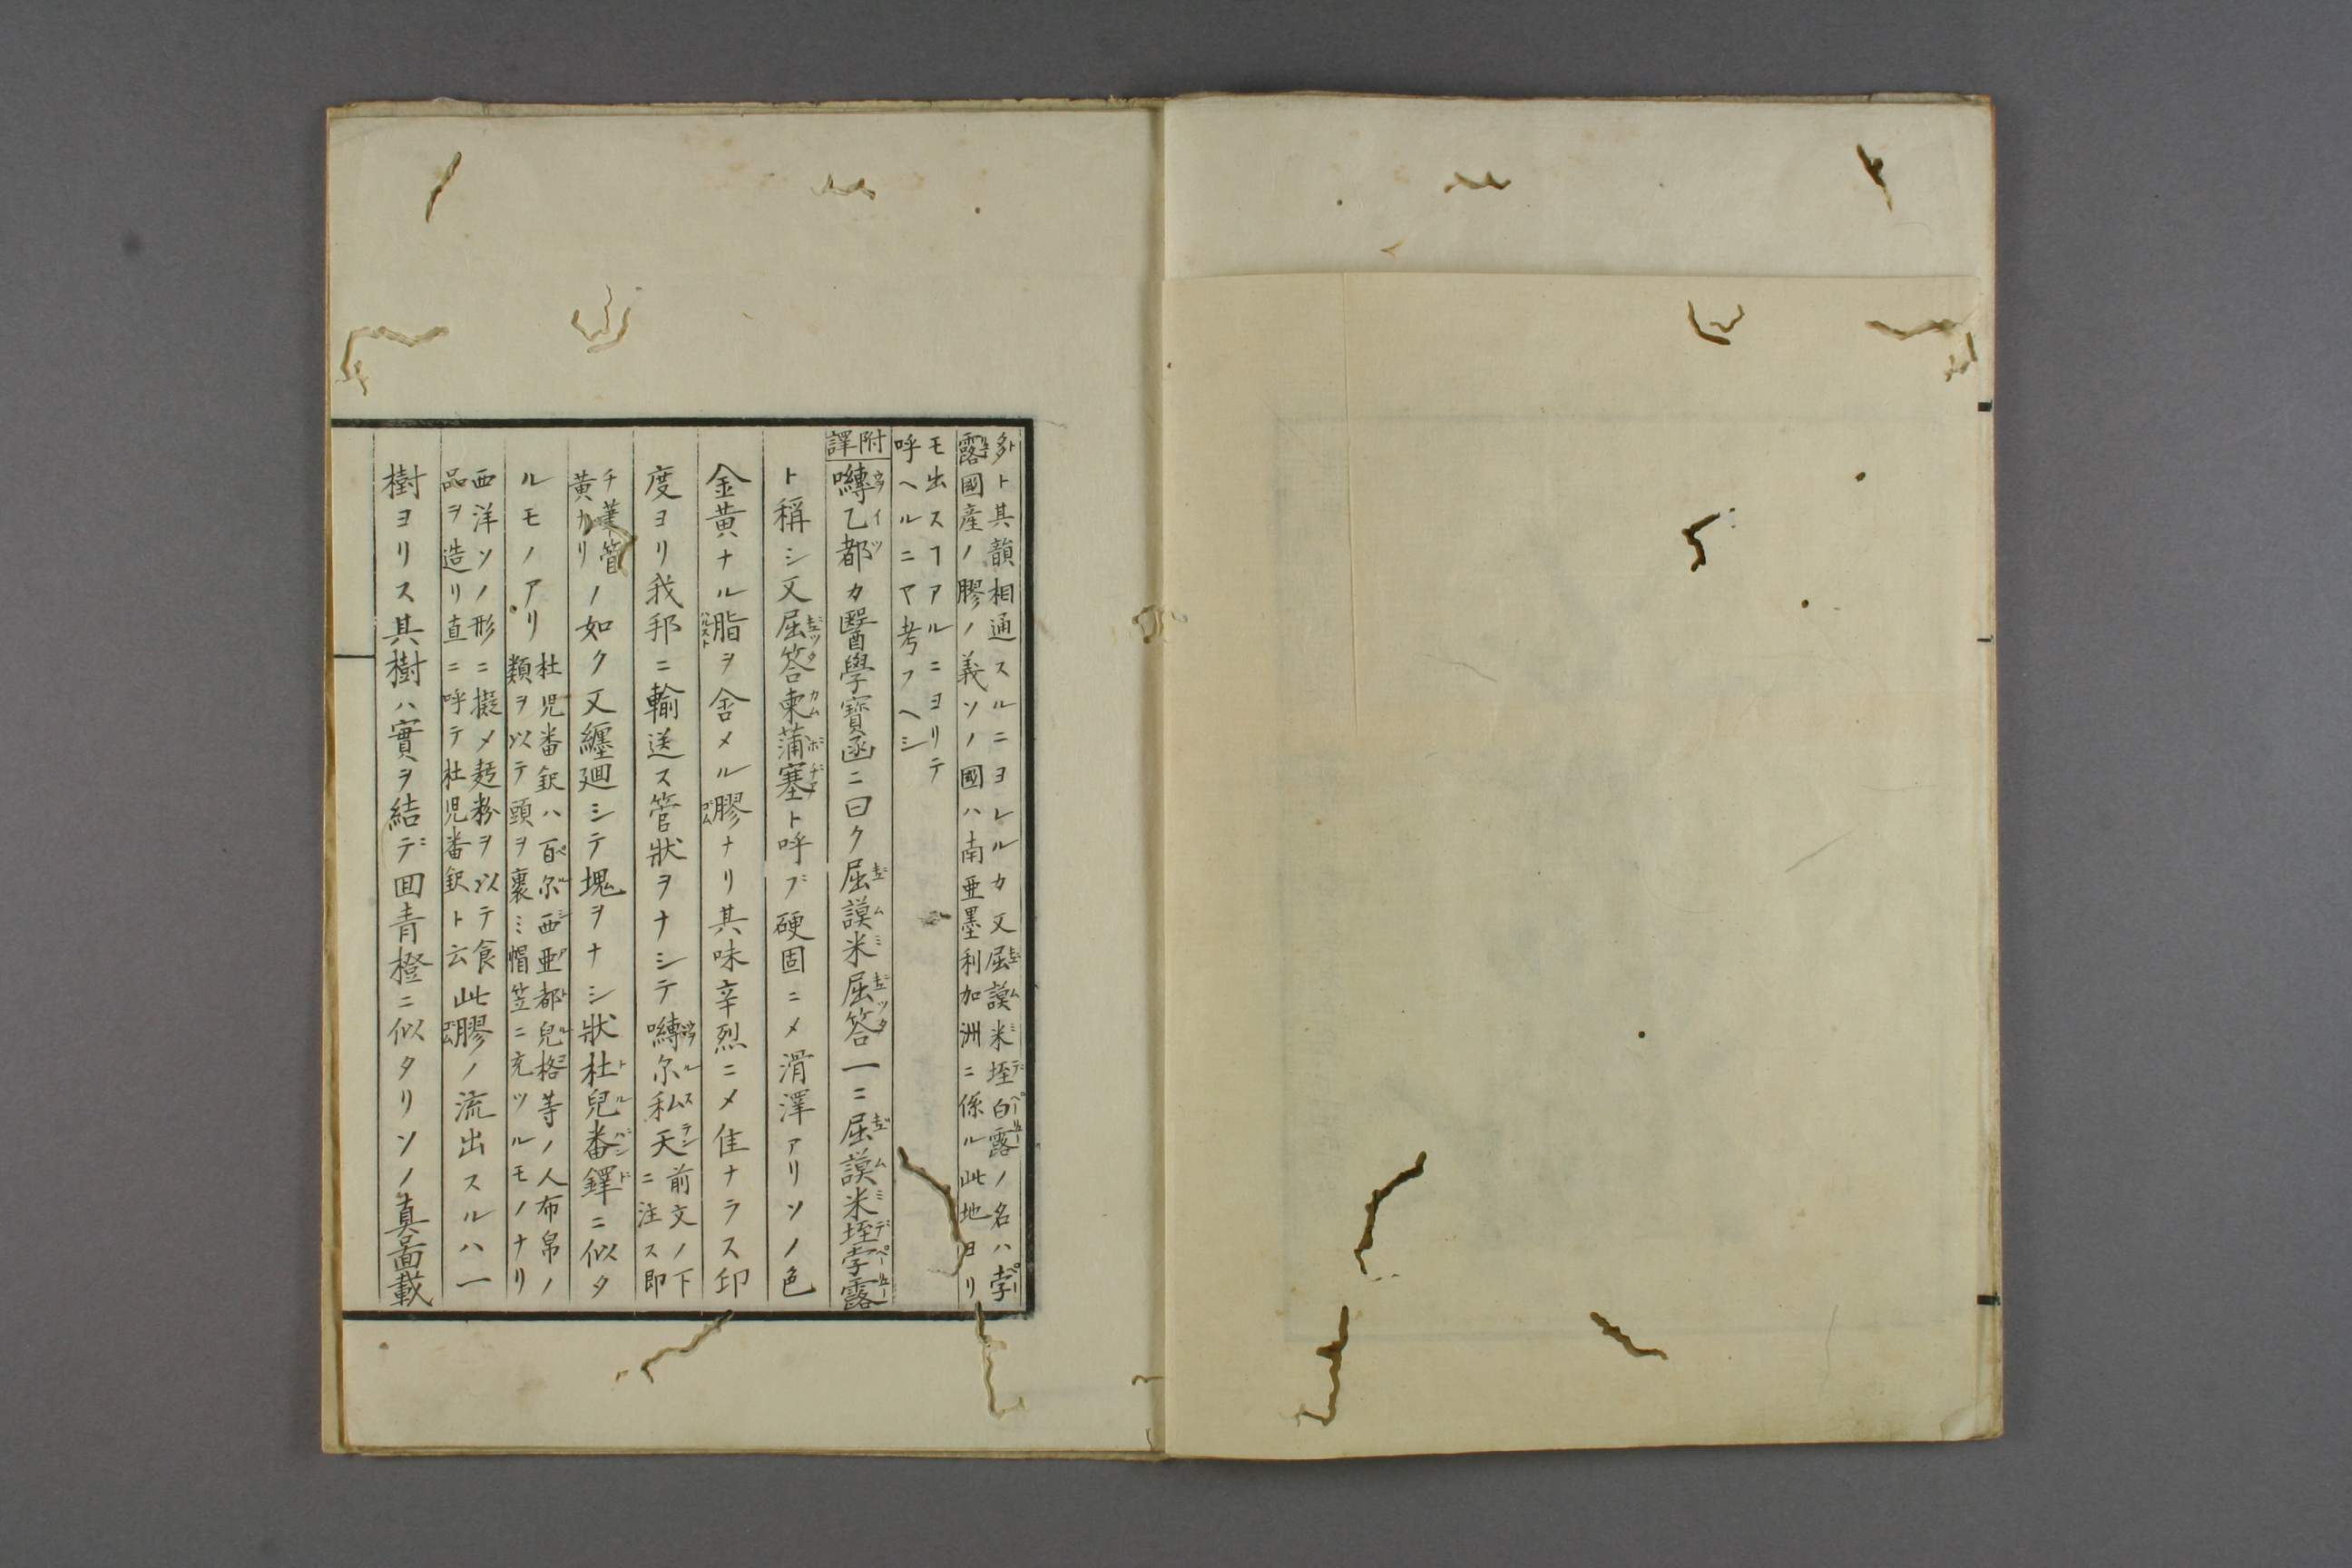 多ト其韻相通スルニヨレルカ又屈謨米垤白露ノ名ハ孛
露國産ノ膠ノ義ソノ國ハ南亜墨利加洲ニ係ル此地ヨリ
モ出スヿアルニヨリテ
呼ヘルニヤ考フヘシ
附譯
囀乙都カ醫學寶函ニ曰ク屈謨米屈答一ニ屈謨米垤孛露
ト稱シ又屈答柬蒲塞ト呼ブ硬固ニメ滑澤アリソノ色
金黄ナル脂ヲ含メル膠ナリ其味辛烈ニメ佳ナラス印
度ヨリ我邦ニ輸送ス管狀ヲナシテ囀尓私天
前文ノ下
ニ注ス即
チ葦管
黄カリ
ノ如ク又纒廻シテ塊ヲナシ狀杜兒番鐸ニ似タ
ルモノアリ
杜児番鈬ハ百尓西亜都兒格等ノ人布帛ノ
類ヲ以テ頭ヲ裹ミ帽笠ニ充ツルモノナリ
西洋ソノ形ニ擬メ麪粉ヲ以テ食
品ヲ造リ直ニ呼テ杜児番鈬ト云
此膠ノ流出スルハ一
樹ヨリス其樹ハ實ヲ結デ囬青橙ニ似タリソノ真啚載